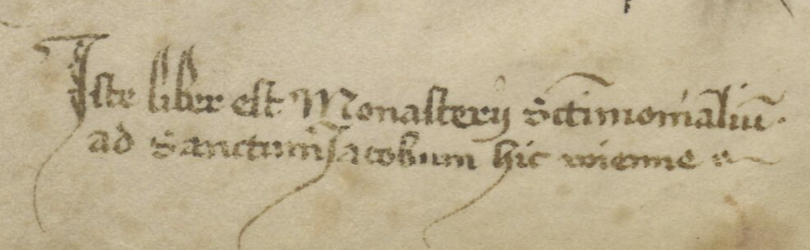 Iste liber est Monasterij sctimonialiū
ad Sanctum Jacobum hic wienne